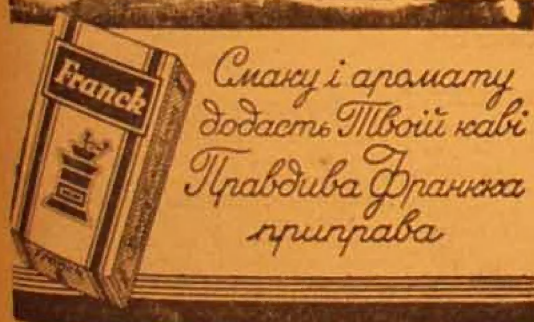 Franck
Смаку і аромату
додасть Твоїй каві
Правдива Франкка
приправа
Franck